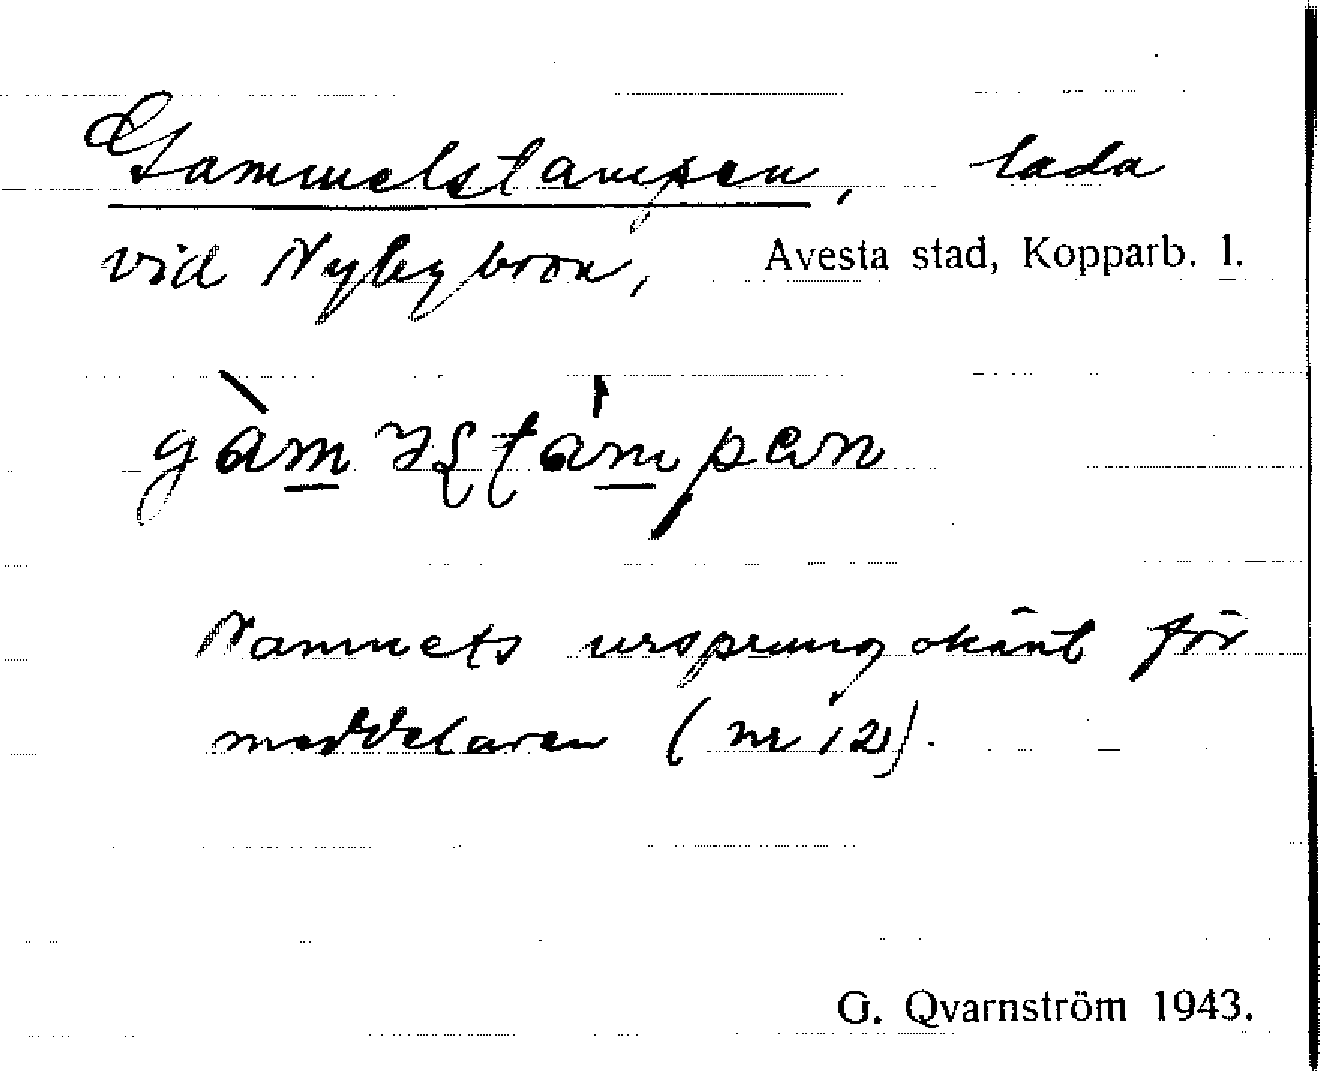 Gammelstampen, lada
vid Nybybron, Avesta stad, Kopparb. l.
Namnets ursprung okänt för
meddelaren (nr 12).
G. Qvarnström 1943.